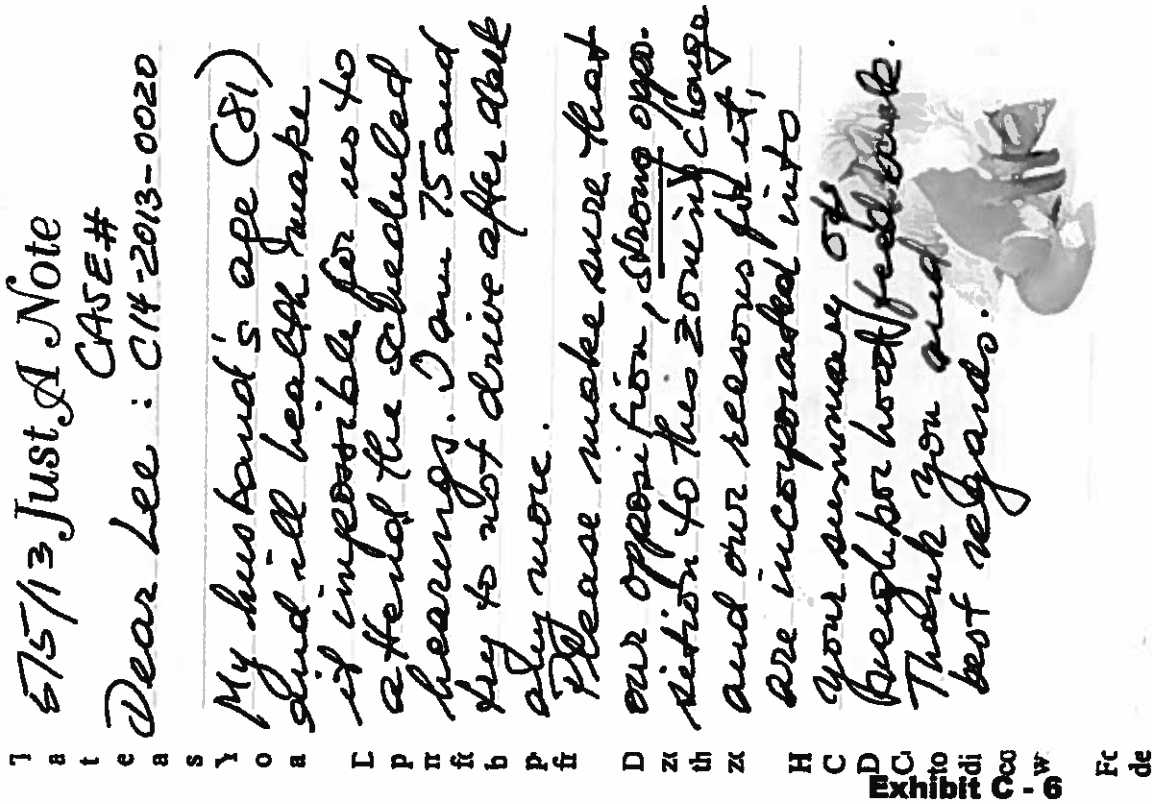 Just A Note
CASE#
Dear Lee : C14-2013-0020
My husband's age (81)
and ill health make
it impossible for us to
attend the scheduled
hearings. I am 75 and
try to not drive after dark
any more.
Please make sure that
our opposition, strong oppo-
sition to this zoning change
and our reasons for it,
are incorporated into
your summary of
neighborhood feedback.
Thank you and
best regards.
T
a
t
e
a
s
Y
o
a
L
p
n
fc
b
p
fr
D
zo
th
zo
H
C
D
Co
to
di
co
w
Fo
de
Exhibit C - 6